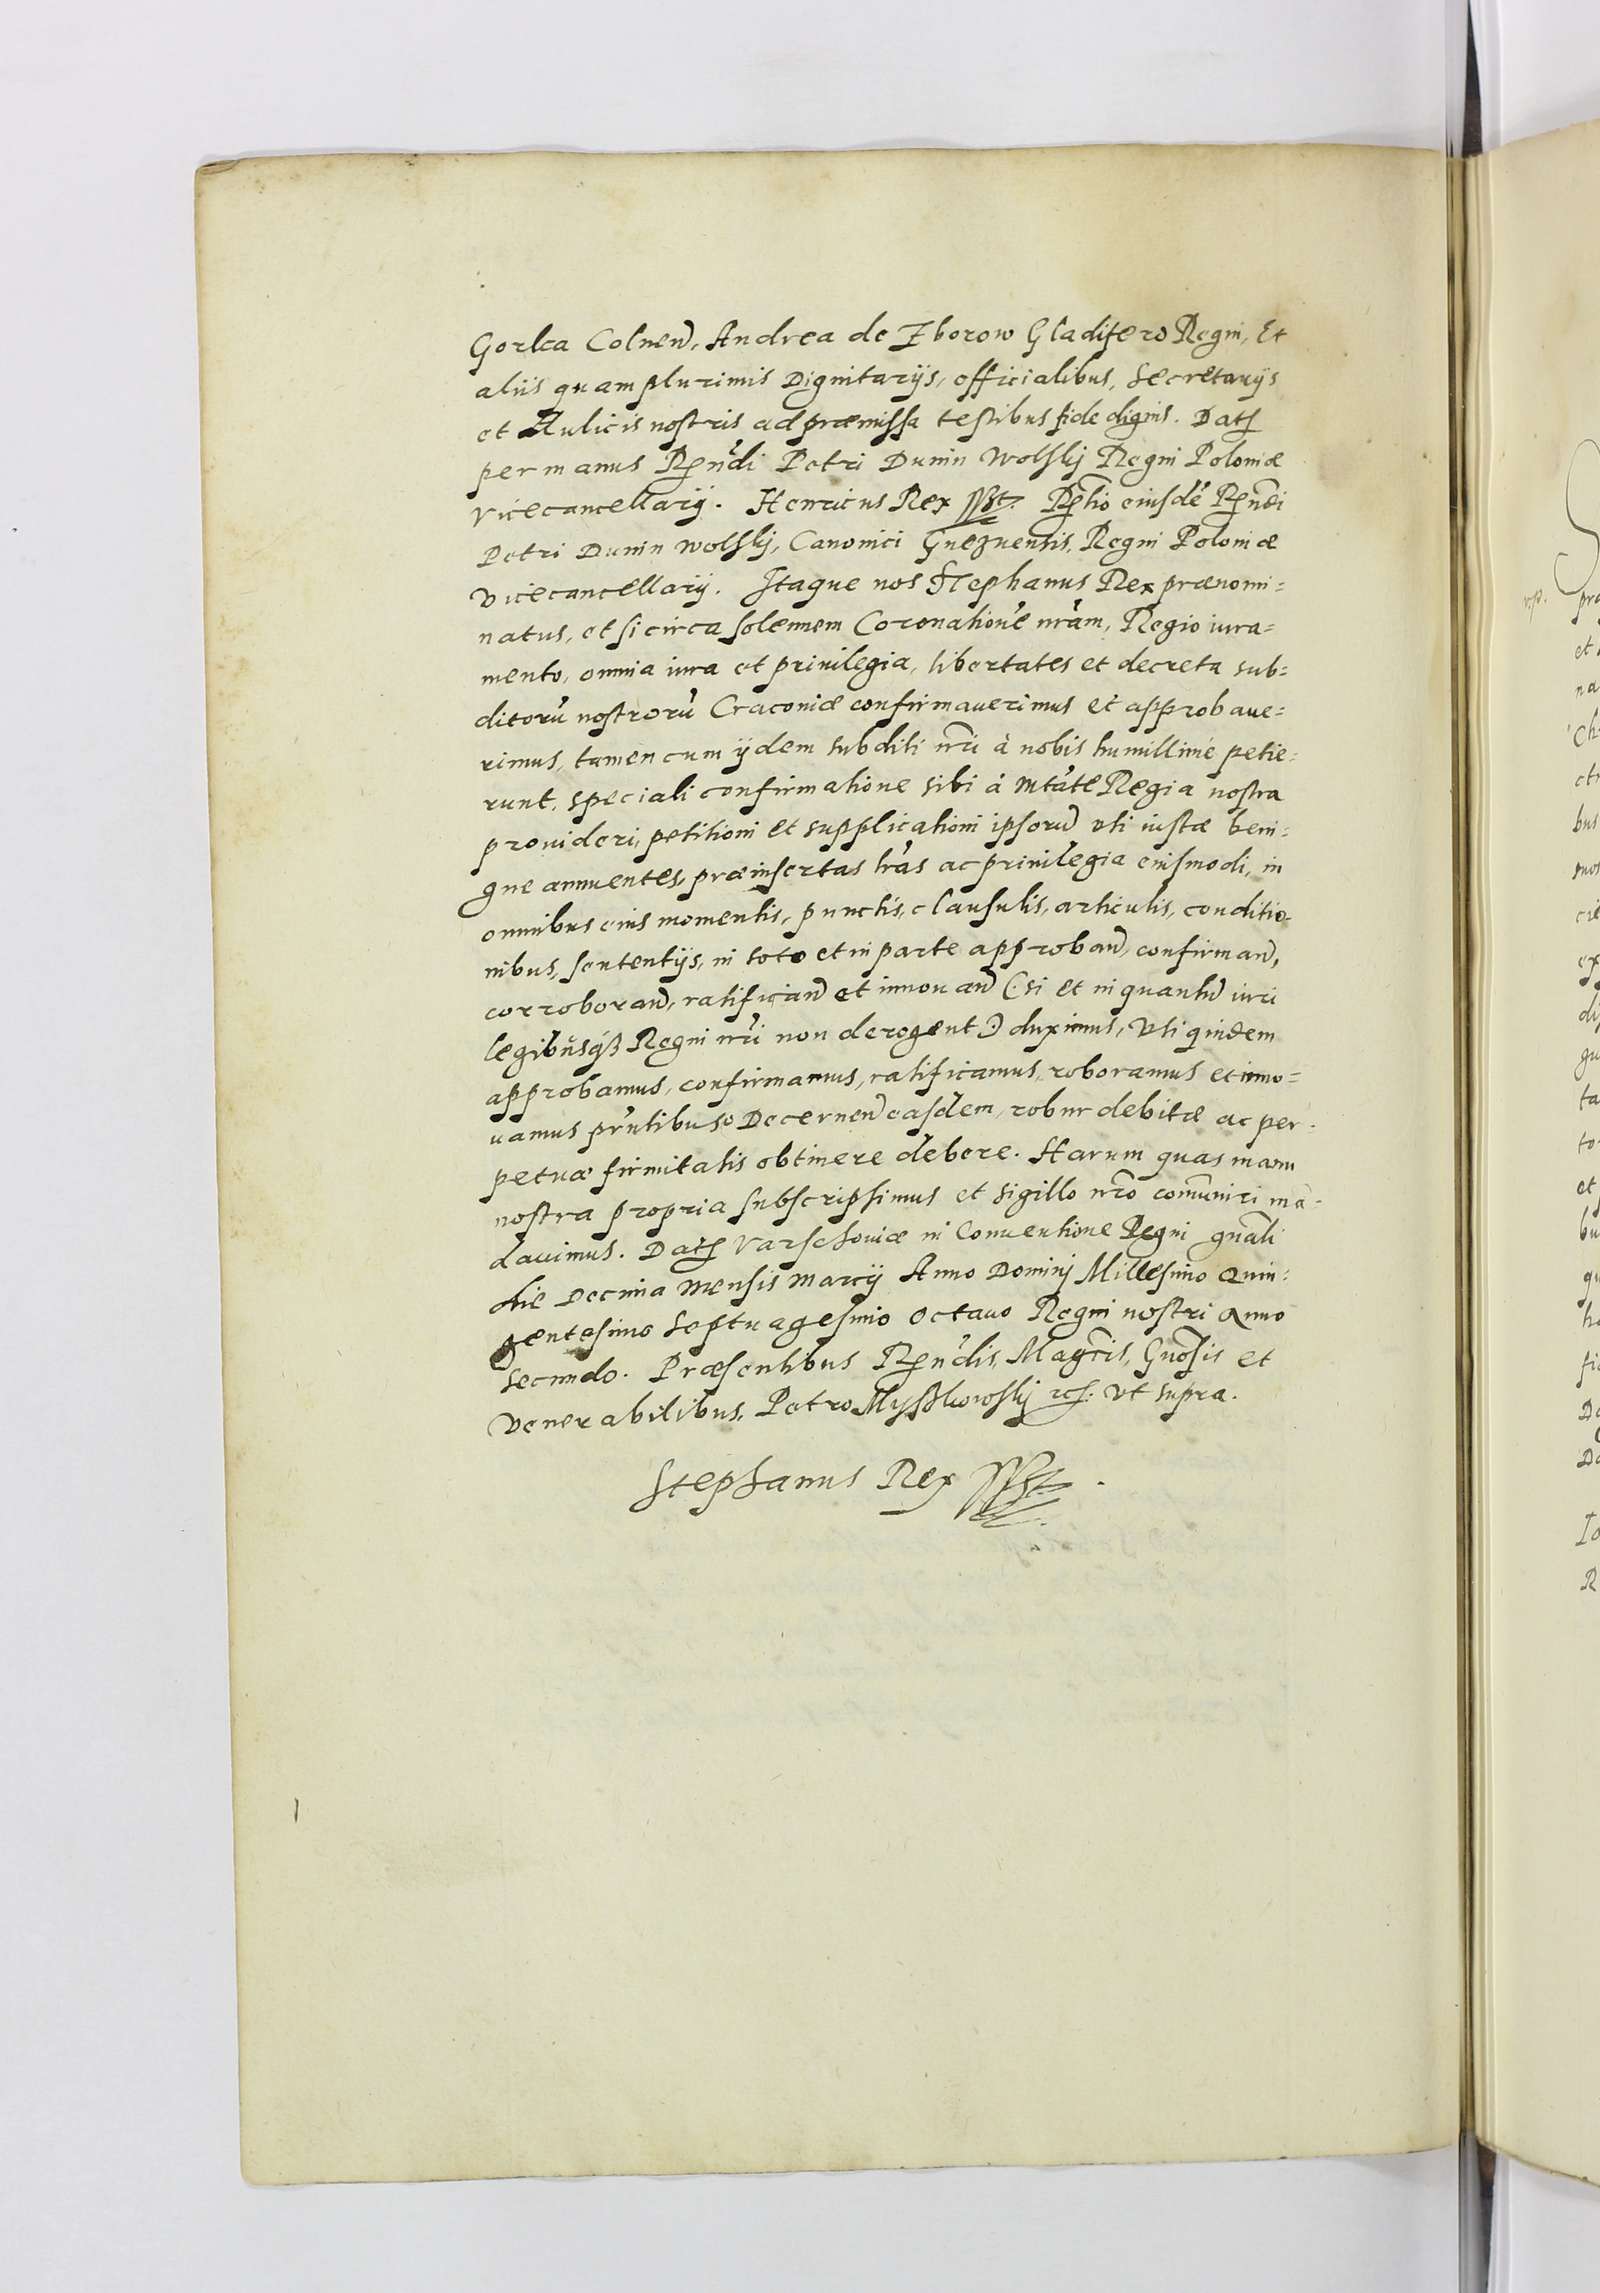 Gorka Colnen̄, Andrea de Zborow Gladifero Regni, Et
aliis quam plurimis Dignitarijs, officialibus, Secretarijs
et Aulicis nostris ad præmissa testibus fide dignis. Datꝭ
per manus Rn̄di Petri Dunin Wolskij Regni Poloniæ
Vicecancellarij. Henricus Rex sst. Rēlio eiusdē Rn̄di
Petri Dunin Wolskij, Canonici Gneznensis, Regni Poloniæ
vicecancellarij. Itaque nos Stephanus Rex prænomi=
natus, etsi circa solennem Coronationē nrām, Regio iura=
mento, omnia iura et priuilegia, libertates et decreta sub=
ditorū nostrorū Cracouiæ confirmauerimus et approbaue=
rimus, tamen cum ijdem subditi nrī à nobis humillimè petie=
runt, speciali confirmatione sibi à Mtāte Regia nostra
prouideri, petitioni et supplicationi ipsorū vti iustæ beni=
gne annuentes, præinsertas lrās ac priuilegia eiusmodi, in
omnibus eius momentis, punctis, clausulis, articulis, conditio=
nibus, sententijs, in toto et in parte approban̄, confirman̄,
corroboran̄, ratifican̄ et innouan̄ (: si et in quantū iuri
legibusqȝ Regni nrī non derogent :) duximus, Vti quidem
approbamus, confirmamus, ratificamus, roboramus et inno=
uamus prn̄tibus Decernen̄ easdem, robur debitæ ac per=
petuæ firmitatis obtinere debere. Harum quas manu
nostra propria subscripsimus et sigillo nrō com̄uniri mā=
dauimus. Datꝭ Varschouiæ in Conuentione Regni gn̄ali
die Decima Mensis Marcij Anno Dominj Millesimo Quin=
gentesimo Septuagesimo octauo Regni nostri Anno
Secundo. Præsentibus Rn̄dis, Magcīs, Gnōsis et
Venerabilibus, Petro Myszkowskij rcꝭ. Vt supra.
Stephanus Rex sst.